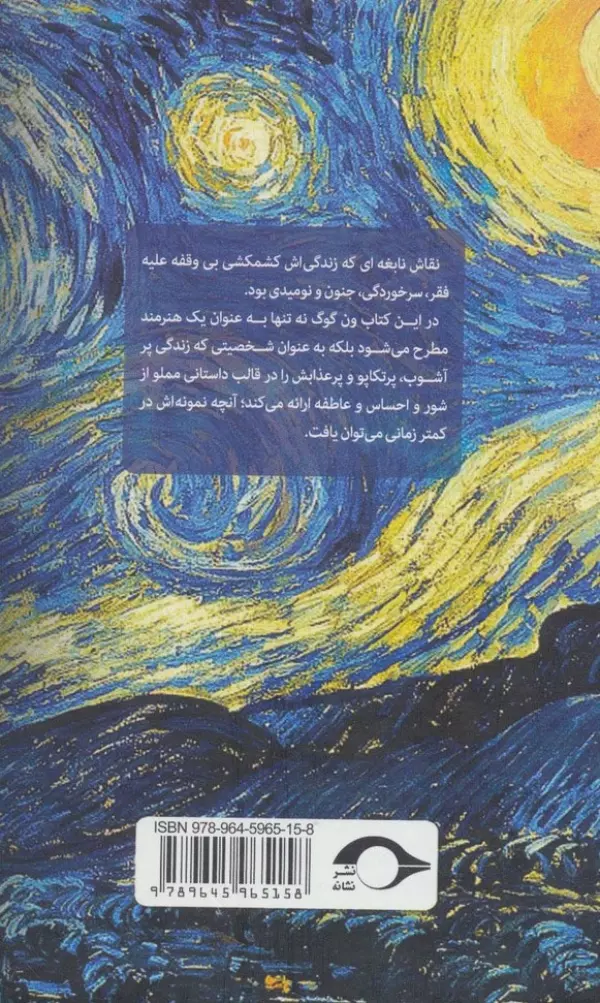 نقاش نابغه ای که زندگی‌اش کشمکشی بی وقفه علیه
فقر، سرخوردگی، جنون و نومیدی بود.
در این کتاب ون گوگ نه تنها به عنوان یک هنرمند
مطرح می‌شود بلکه به عنوان شخصیتی که زندگی پر
آشوب، پرتکاپو و پرعذابش را در قالب داستانی مملو از
شور و احساس و عاطفه ارائه می‌کند؛ آنچه نمونه‌اش در
کمتر زمانی می‌توان یافت.
ISBN 978-964-5965-15-8
9 789645 965158
نشر
نشانه